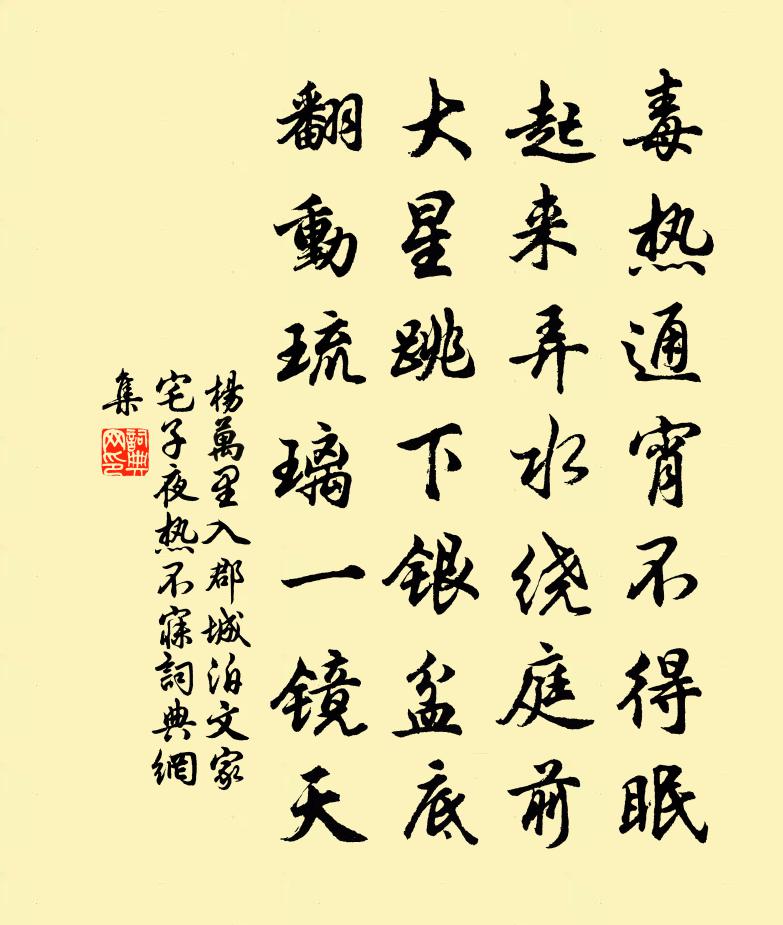 毒热通宵不得眠
起来弄水绕庭前
大星跳下银盆底
翻動琉璃一镜天
楊萬里入郡城泊文家
宅子夜热不寐詞典網
集
詞典网印